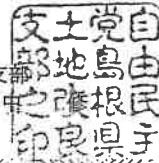 自由民主
党島根県
土地改良
支部之印